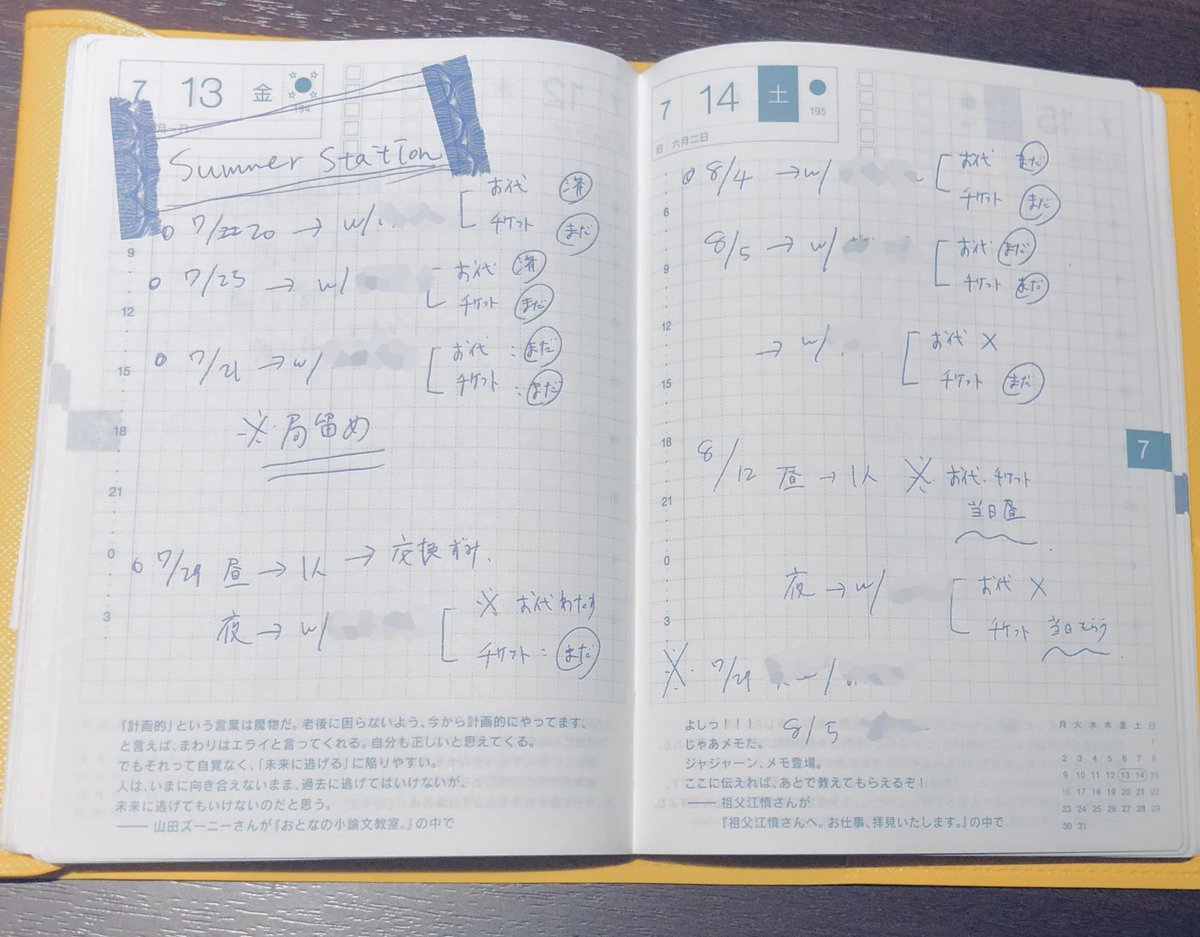 7 13 金
194
Summer Station
7/22 20 → w/
お代 済
チケット まだ
9
7/23 → w/
お代 済
チケット まだ
12
7/21 → w/
お代：まだ
チケット：まだ
15
※局留め
18
21
0
7/29 昼 → 1人 → 交換ずみ.
夜 → w/
※ お代わたす
チケット：まだ
3
「計画的」という言葉は魔物だ。老後に困らないよう、今から計画的にやってます、
と言えば、まわりはエライと言ってくれる。自分も正しいと思えてくる。
でもそれって自覚なく、「未来に逃げる」に陥りやすい。
人は、いまに向き合えないまま、過去に逃げてはいけないが、
未来に逃げてもいけないのだと思う。
―― 山田ズーニーさんが『おとなの小論文教室。』の中で
7 14 土
195
旧：六月二日
8/4 → w/
お代 まだ
チケット まだ
6
8/5 → w/
お代 まだ
チケット まだ
9
12
→ w/
お代 ×
チケット まだ
15
18
8/12 昼 → 1人 ※ お代・チケット
当日昼
21
0
夜 → w/
お代 ×
チケット 当日もらう
3
※ 7/29 w/
8/5
7
よしっ！！！
じゃあメモだ。
ジャジャーン、メモ登場。
ここに伝えれば、あとで教えてもらえるぞ！
―― 祖父江慎さんが
『祖父江慎さんへ。お仕事、拝見いたします。』の中で
月 火 水 木 金 土 日
1
2 3 4 5 6 7 8
9 10 11 12 13 14 15
16 17 18 19 20 21 22
23 24 25 26 27 28 29
30 31